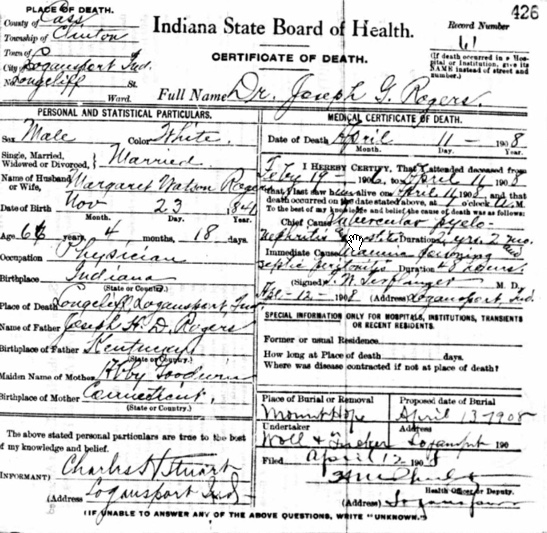 PLACE OF DEATH.
426
County of Cass
Township of Clinton
Town of
City of Logansport Ind.
No. Longcliff St.
Ward.
Indiana State Board of Health.
CERTIFICATE OF DEATH.
Full Name Dr. Joseph G. Rogers.
Record Number
61
(If death occurred in a Hospital or Institution, give its NAME instead of street and number.)
PERSONAL AND STATISTICAL PARTICULARS.
Sex Male Color White.
Single, Married, Widowed or Divorced, Married
Name of Husband or Wife, Margaret Watson Rogers
Date of Birth Nov 23 1841
Month. Day. Year.
Age 66 years, 4 months, 18 days.
Occupation Physician
Birthplace Indiana
(State or Country.)
Place of Death Longcliff, Logansport Ind.
Name of Father Joseph H. D. Rogers
Birthplace of Father Kentucky
(State or Country.)
Maiden Name of Mother Abby Goodwin
Birthplace of Mother Connecticut.
(State or Country.)
The above stated personal particulars are true to the best of my knowledge and belief.
INFORMANT) Charles H Stuart
(Address Logansport Ind)
MEDICAL CERTIFICATE OF DEATH.
Date of Death April 11 - 1908
Month. Day. Year.
I HEREBY CERTIFY, That I attended deceased from
Feby 190 , to April 11 1908
that I last saw alive on April 11 1908 and that
death occurred on the date stated above, at o'clock M.
To the best of my knowledge and belief, the cause of death was as follows:
Chief Cause Tubercular pyelo-
nephritis Duration yrs. 2 mo.
Immediate Cause
septic Duration hours.
(Signed) M. D.
Apr-12-1908 (Address) Logansport, Ind.
SPECIAL INFORMATION ONLY FOR HOSPITALS, INSTITUTIONS, TRANSIENTS OR RECENT RESIDENTS.
Former or usual Residence
How long at Place of death days.
Where was disease contracted if not at place of death?
Place of Burial or Removal Proposed date of Burial
Mount Hope April 13-1908
Undertaker Address
Woll & Logansport 190
Filed April 12 190
Health Officer or Deputy.
(Address) Logansport
(IF UNABLE TO ANSWER ANY OF THE ABOVE QUESTIONS, WRITE "UNKNOWN.")